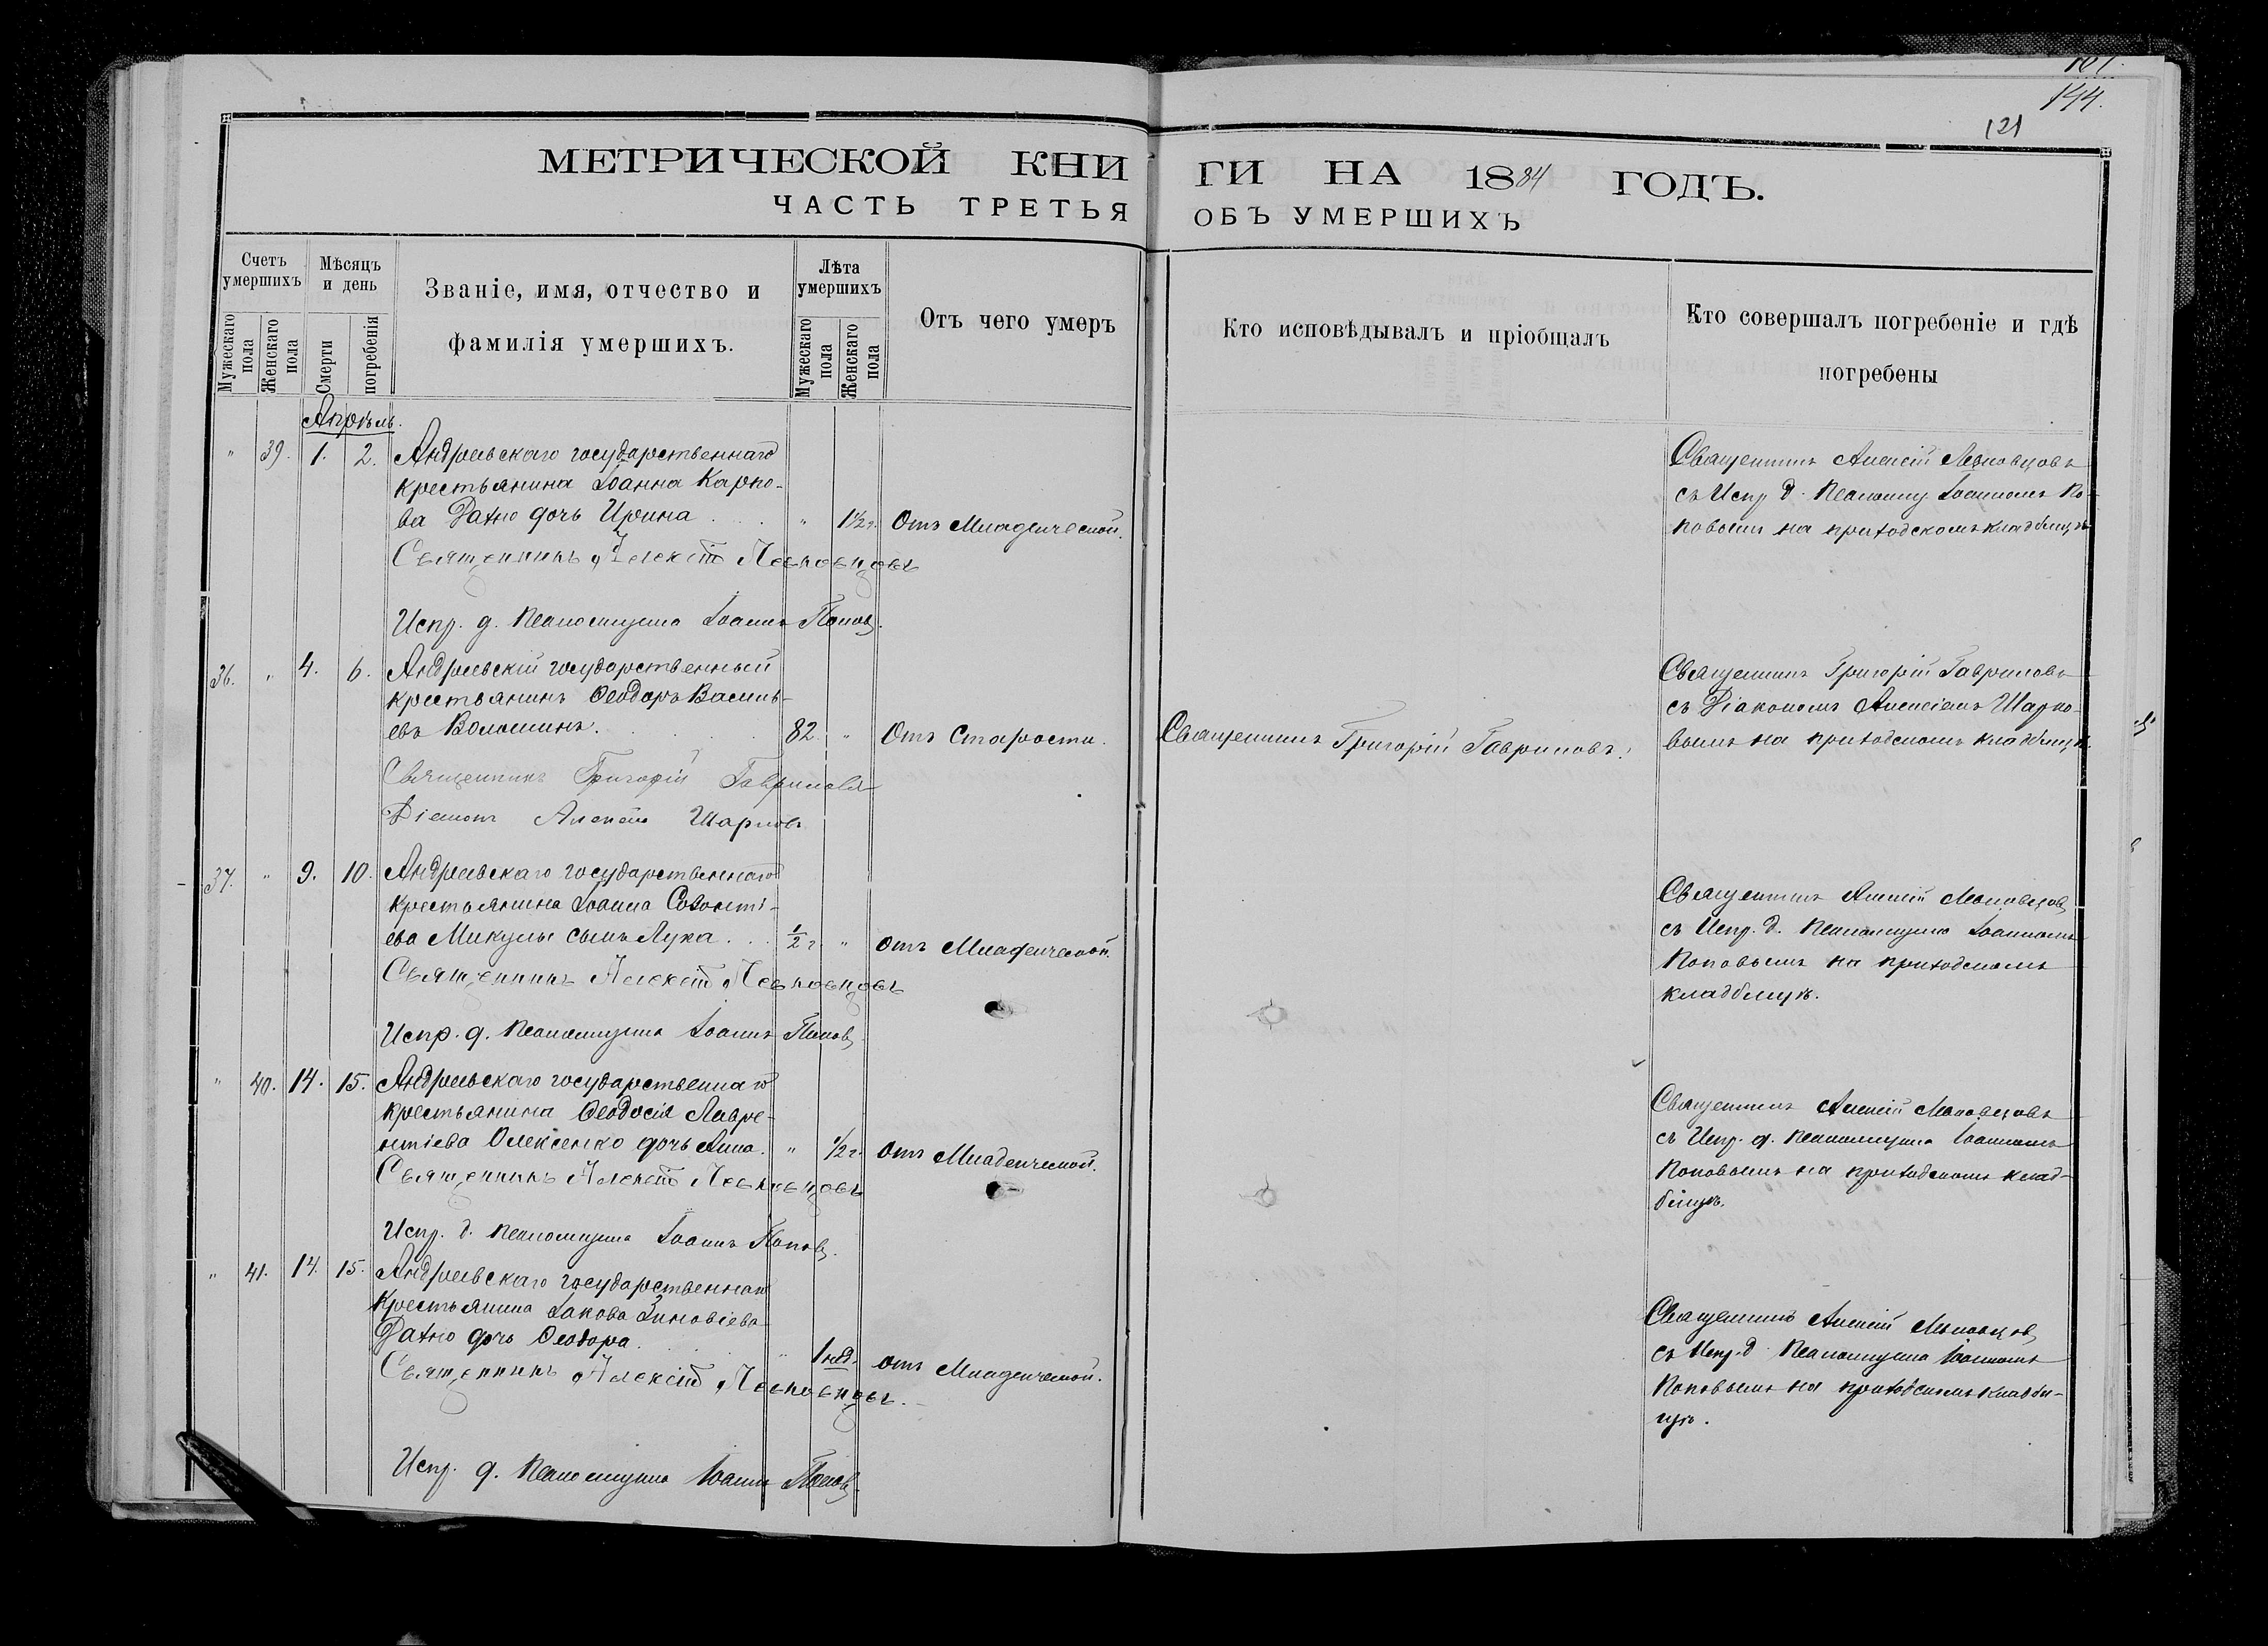 144.
121
МЕТРИЧЕСКОЙ КНИГИ НА 1884 ГОДЪ.
ЧАСТЬ ТРЕТЬЯ ОБЪ УМЕРШИХЪ
Счетъ умершихъ
Мужескаго пола
Женскаго пола
Мѣсяцъ и день
Смерти
погребенія
Званіе, имя, отчество и
фамилія умершихъ.
Лѣта умершихъ
Мужескаго пола
Женскаго пола
Отъ чего умеръ
Кто исповѣдывалъ и пріобщалъ
Кто совершалъ погребеніе и гдѣ
погребены
Апрѣль.
" 39. 1. 2. Андреевскаго государственнаго
крестьянина Іоанна Карпо-
ва Дахно дочь Ирина " 1½ г. Отъ Младенческой.
Священникъ Алексѣй
Испр. д. Псаломщика Іоаннъ Поповъ.
Священникъ Алексѣй
съ Испр. д. Псаломщ. Іоанномъ По-
повымъ на приходскомъ кладбищѣ
36. " 4. 6. Андреевскій государственный
крестьянинъ Ѳеодоръ Василь-
евъ Волошинъ. 82. " Отъ Старости.
Священникъ Григорій Гавриловъ.
Священникъ Григорій Гавриловъ
Діаконъ Алексѣй Шарковъ
Священникъ Григорій Гавриловъ
съ Діакономъ Алексіемъ Шарко-
вымъ на приходскомъ кладбищѣ.
37. " 9. 10. Андреевскаго государственнаго
крестьянина Іоанна Созонті-
ева Микулы сынъ Лука. ½ г. " отъ Младенческой.
Священникъ Алексѣй
Испр. д. Псаломщика Іоаннъ Поповъ
Священникъ Алексѣй
съ Испр. д. Псаломщика Іоанномъ
Поповымъ на приходскомъ
кладбищѣ.
" 40. 14. 15. Андреевскаго государственнаго
крестьянина Ѳеодосія Лавре-
нтіева Олексенко дочь Анна. " ½ г. отъ Младенческой.
Священникъ Алексѣй
Испр. д. Псаломщика Іоаннъ Поповъ.
Священникъ Алексѣй
съ Испр. д. Псаломщика Іоанномъ
Поповымъ на приходскомъ клад-
бищѣ.
" 41. 14. 15. Андреевскаго государственнаго
крестьянина Іакова Зиновіева
Дахно дочь Ѳеодора. " 1 нед. отъ Младенческой.
Священникъ Алексѣй
Испр. д. Псаломщика Іоаннъ Поповъ
Священникъ Алексѣй
съ Испр. д. Псаломщика Іоанномъ
Поповымъ на приходскомъ кладби-
щѣ.